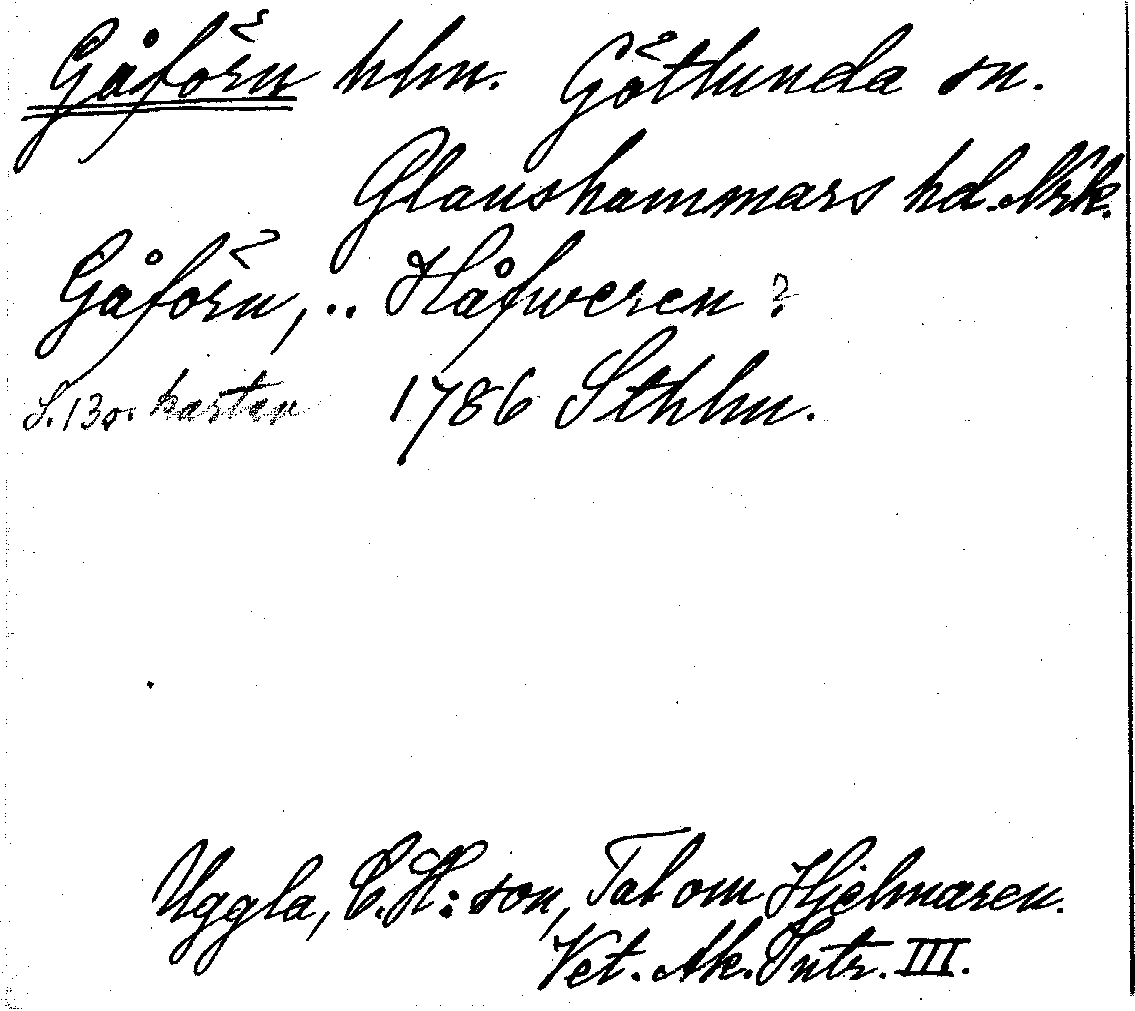 Gåförn hlm. Götlunda sn.
Glanshammars hd. Nrk.
Gåförn, .. Håfweren ?
S. 130. kartan 1786 Sthlm.
Uggla, C. H:son, Tal om Hjelmaren.
Vet. Ak. Intr. III.